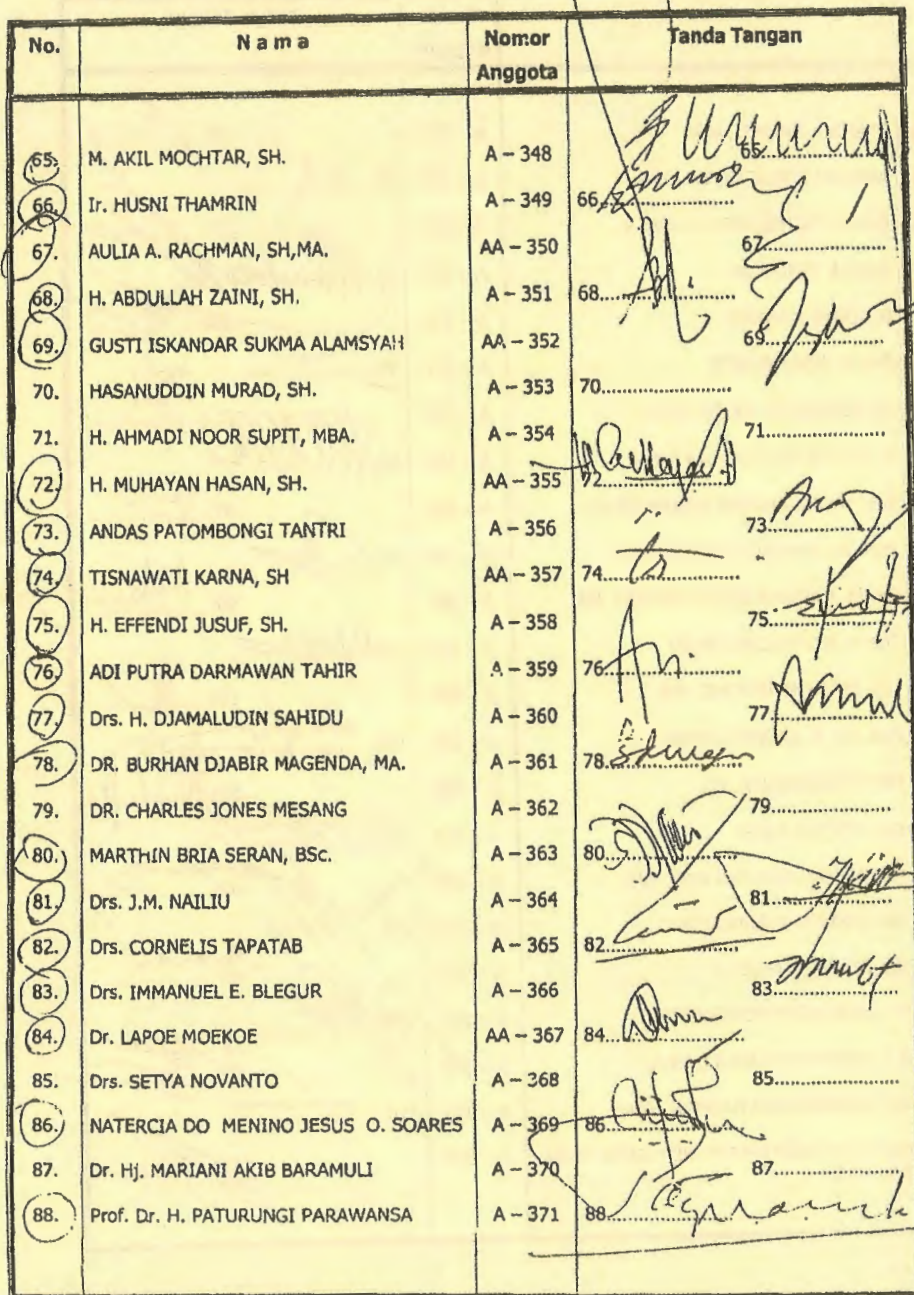 No. Nama Nomor Anggota Tanda Tangan
65. M. AKIL MOCHTAR, SH. A – 348 65
66. Ir. HUSNI THAMRIN A – 349 66..................
67. AULIA A. RACHMAN, SH,MA. AA – 350 67..................
68. H. ABDULLAH ZAINI, SH. A – 351 68..................
69. GUSTI ISKANDAR SUKMA ALAMSYAH AA – 352 69..................
70. HASANUDDIN MURAD, SH. A – 353 70..................
71. H. AHMADI NOOR SUPIT, MBA. A – 354 71..................
72. H. MUHAYAN HASAN, SH. AA – 355 72..................
73. ANDAS PATOMBONGI TANTRI A – 356 73..................
74. TISNAWATI KARNA, SH AA – 357 74..................
75. H. EFFENDI JUSUF, SH. A – 358 75..................
76. ADI PUTRA DARMAWAN TAHIR A – 359 76..................
77. Drs. H. DJAMALUDIN SAHIDU A – 360 77..................
78. DR. BURHAN DJABIR MAGENDA, MA. A – 361 78..................
79. DR. CHARLES JONES MESANG A – 362 79..................
80. MARTHIN BRIA SERAN, BSc. A – 363 80..................
81. Drs. J.M. NAILIU A – 364 81..................
82. Drs. CORNELIS TAPATAB A – 365 82..................
83. Drs. IMMANUEL E. BLEGUR A – 366 83..................
84. Dr. LAPOE MOEKOE AA – 367 84..................
85. Drs. SETYA NOVANTO A – 368 85..................
86. NATERCIA DO MENINO JESUS O. SOARES A – 369 86..................
87. Dr. Hj. MARIANI AKIB BARAMULI A – 370 87..................
88. Prof. Dr. H. PATURUNGI PARAWANSA A – 371 88..................